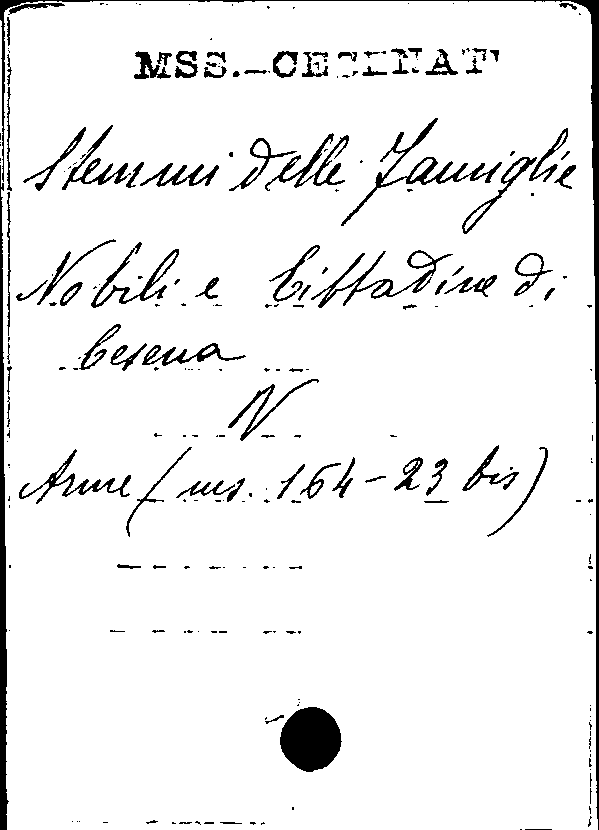 MSS. CESENATI
Stemmi delle Famiglie
Nobili e Cittadine di
Cesena
N
Arme (ms. 164-23 bis)